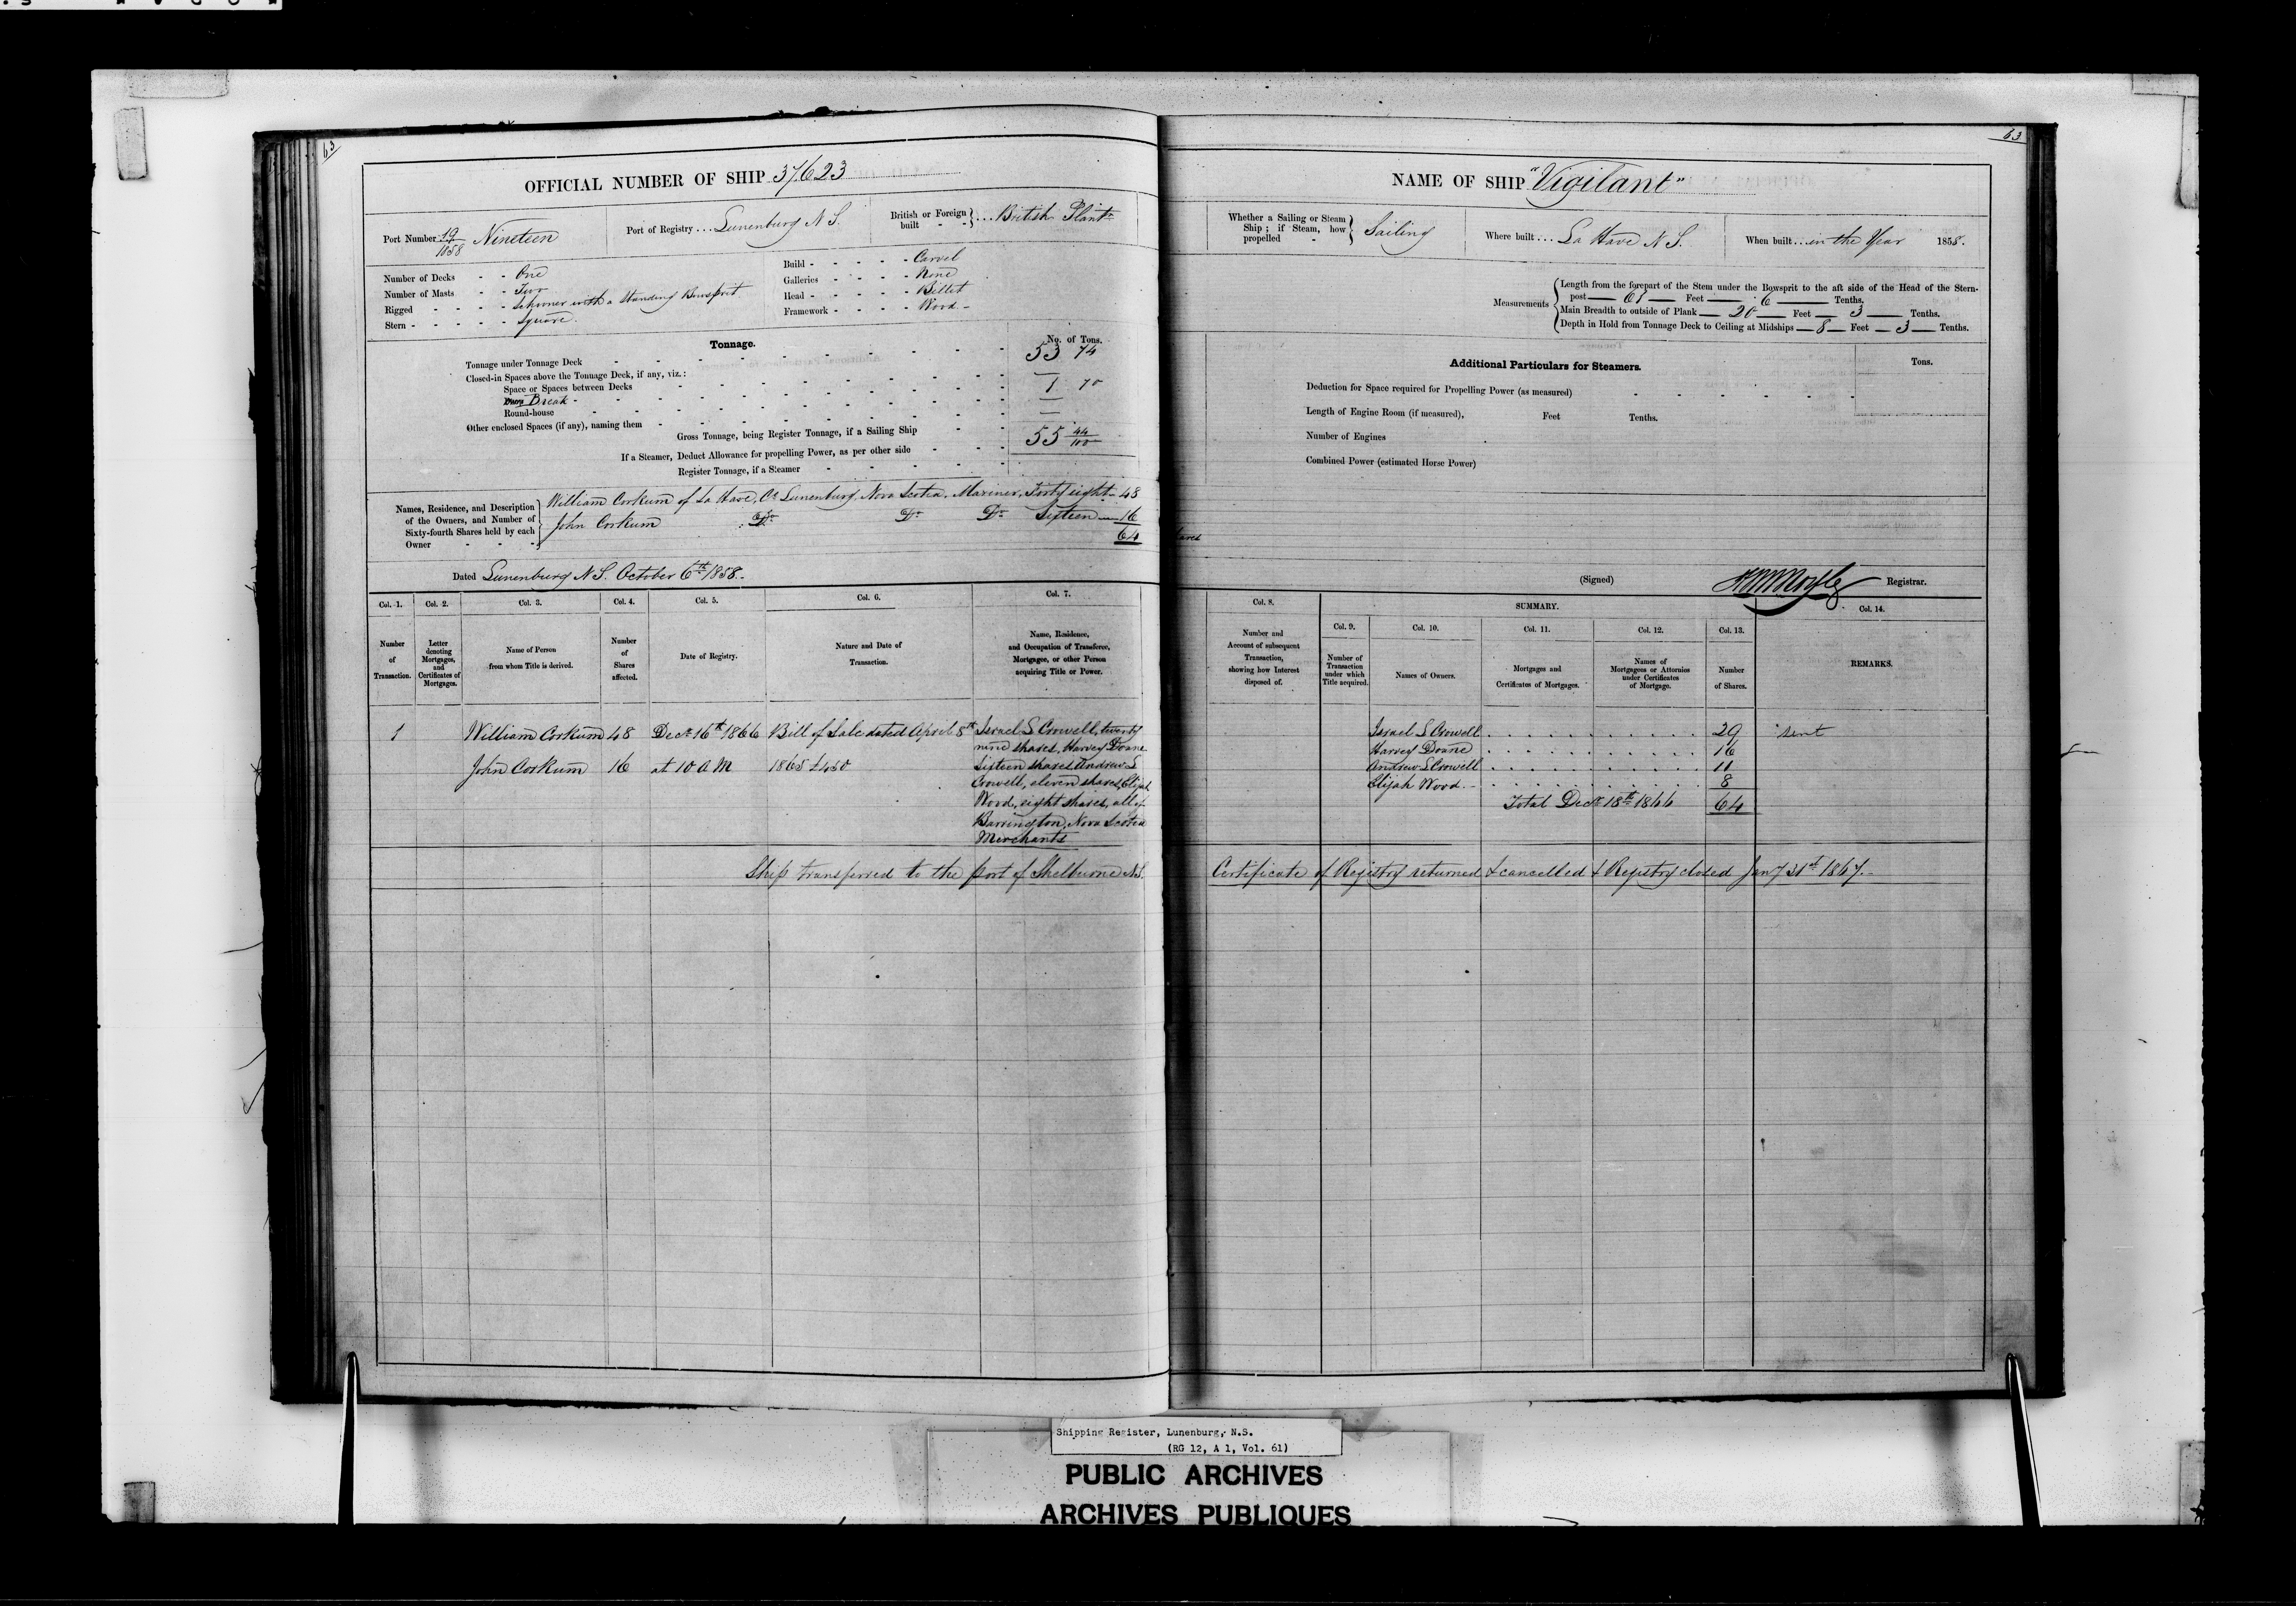 63
OFFICIAL NUMBER OF SHIP 37623
Port Number 19/1858 Nineteen
Port of Registry ... Lunenburg N S.
British or Foreign built - - } ... British Plantn
Number of Decks - - One
Number of Masts - - Two
Rigged - - - - Schooner with a Standing Bowsprit
Stern - - - - - Square.
Build - - - - - Carvel
Galleries - - - - None
Head - - - - - Billet
Framework - - - - Wood -
Tonnage.
No. of Tons.
Tonnage under Tonnage Deck 53 74
Closed-in Spaces above the Tonnage Deck, if any, viz.:
Space or Spaces between Decks —
Break - 1 70
Round-house —
Other enclosed Spaces (if any), naming them —
Gross Tonnage, being Register Tonnage, if a Sailing Ship 55 44/100
If a Steamer, Deduct Allowance for propelling Power, as per other side
Register Tonnage, if a Steamer
Names, Residence, and Description of the Owners, and Number of Sixty-fourth Shares held by each Owner
William Corkum of La Have, Co Lunenburg, Nova Scotia, Mariner, Forty eight - 48
John Corkum Do Do Do Sixteen — 16
64
Dated Lunenburg N S. October 6th 1858.
Col. 1. Col. 2. Col. 3. Col. 4. Col. 5. Col. 6. Col. 7.
Number of Transaction.
Letter denoting Mortgages, and Certificates of Mortgages.
Name of Person from whom Title is derived.
Number of Shares affected.
Date of Registry.
Nature and Date of Transaction.
Name, Residence, and Occupation of Transferee, Mortgagee, or other Person acquiring Title or Power.
1 William Corkum 48 Decr 16th 1866 Bill of Sale dated April 8th Israel S Crowell, twenty
nine shares, Harvey Doane
John Corkum 16 at 10 A M 1865 £450 Sixteen shares Andrew S
Crowell, eleven shares, Elijah
Wood, eight shares, all of
Barrington, Nova Scotia
Merchants
Ship transferred to the port of Shelburne N.S.
63
NAME OF SHIP "Vigilant"
Whether a Sailing or Steam Ship; if Steam, how propelled - } Sailing
Where built ... La Have N S.
When built ... in the Year 1858.
Measurements
Length from the forepart of the Stem under the Bowsprit to the aft side of the Head of the Stern-
post — 61 — Feet — 6 — Tenths.
Main Breadth to outside of Plank — 20 — Feet — 3 — Tenths.
Depth in Hold from Tonnage Deck to Ceiling at Midships — 8 — Feet — 3 — Tenths.
Additional Particulars for Steamers.
Tons.
Deduction for Space required for Propelling Power (as measured)
Length of Engine Room (if measured), Feet Tenths.
Number of Engines
Combined Power (estimated Horse Power)
(Signed) Registrar.
Col. 8.
SUMMARY.
Col. 9. Col. 10. Col. 11. Col. 12. Col. 13. Col. 14.
Number and Account of subsequent Transaction, showing how Interest disposed of.
Number of Transaction under which Title acquired.
Names of Owners.
Mortgages and Certificates of Mortgages.
Names of Mortgagees or Attornies under Certificates of Mortgage.
Number of Shares.
REMARKS.
Israel S Crowell 29 sent
Harvey Doane 16
Andrew S Crowell 11
Elijah Wood. 8
Total Decr 18th 1866 64
Certificate of Registry returned & cancelled & Registry closed Jany 31st 1867.
Shipping Register, Lunenburg, N.S.
(RG 12, A 1, Vol. 61)
PUBLIC ARCHIVES
ARCHIVES PUBLIQUES